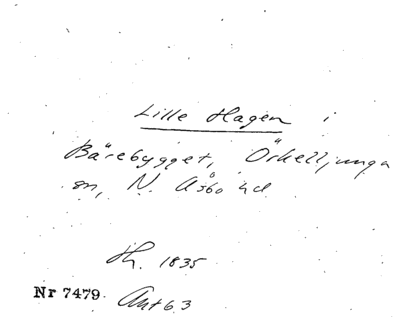 Lille Hagen i
Bärebygget, Örkelljunga
sn, N. Åsbo hd
Th. 1835
Nr 7479. Ant 63